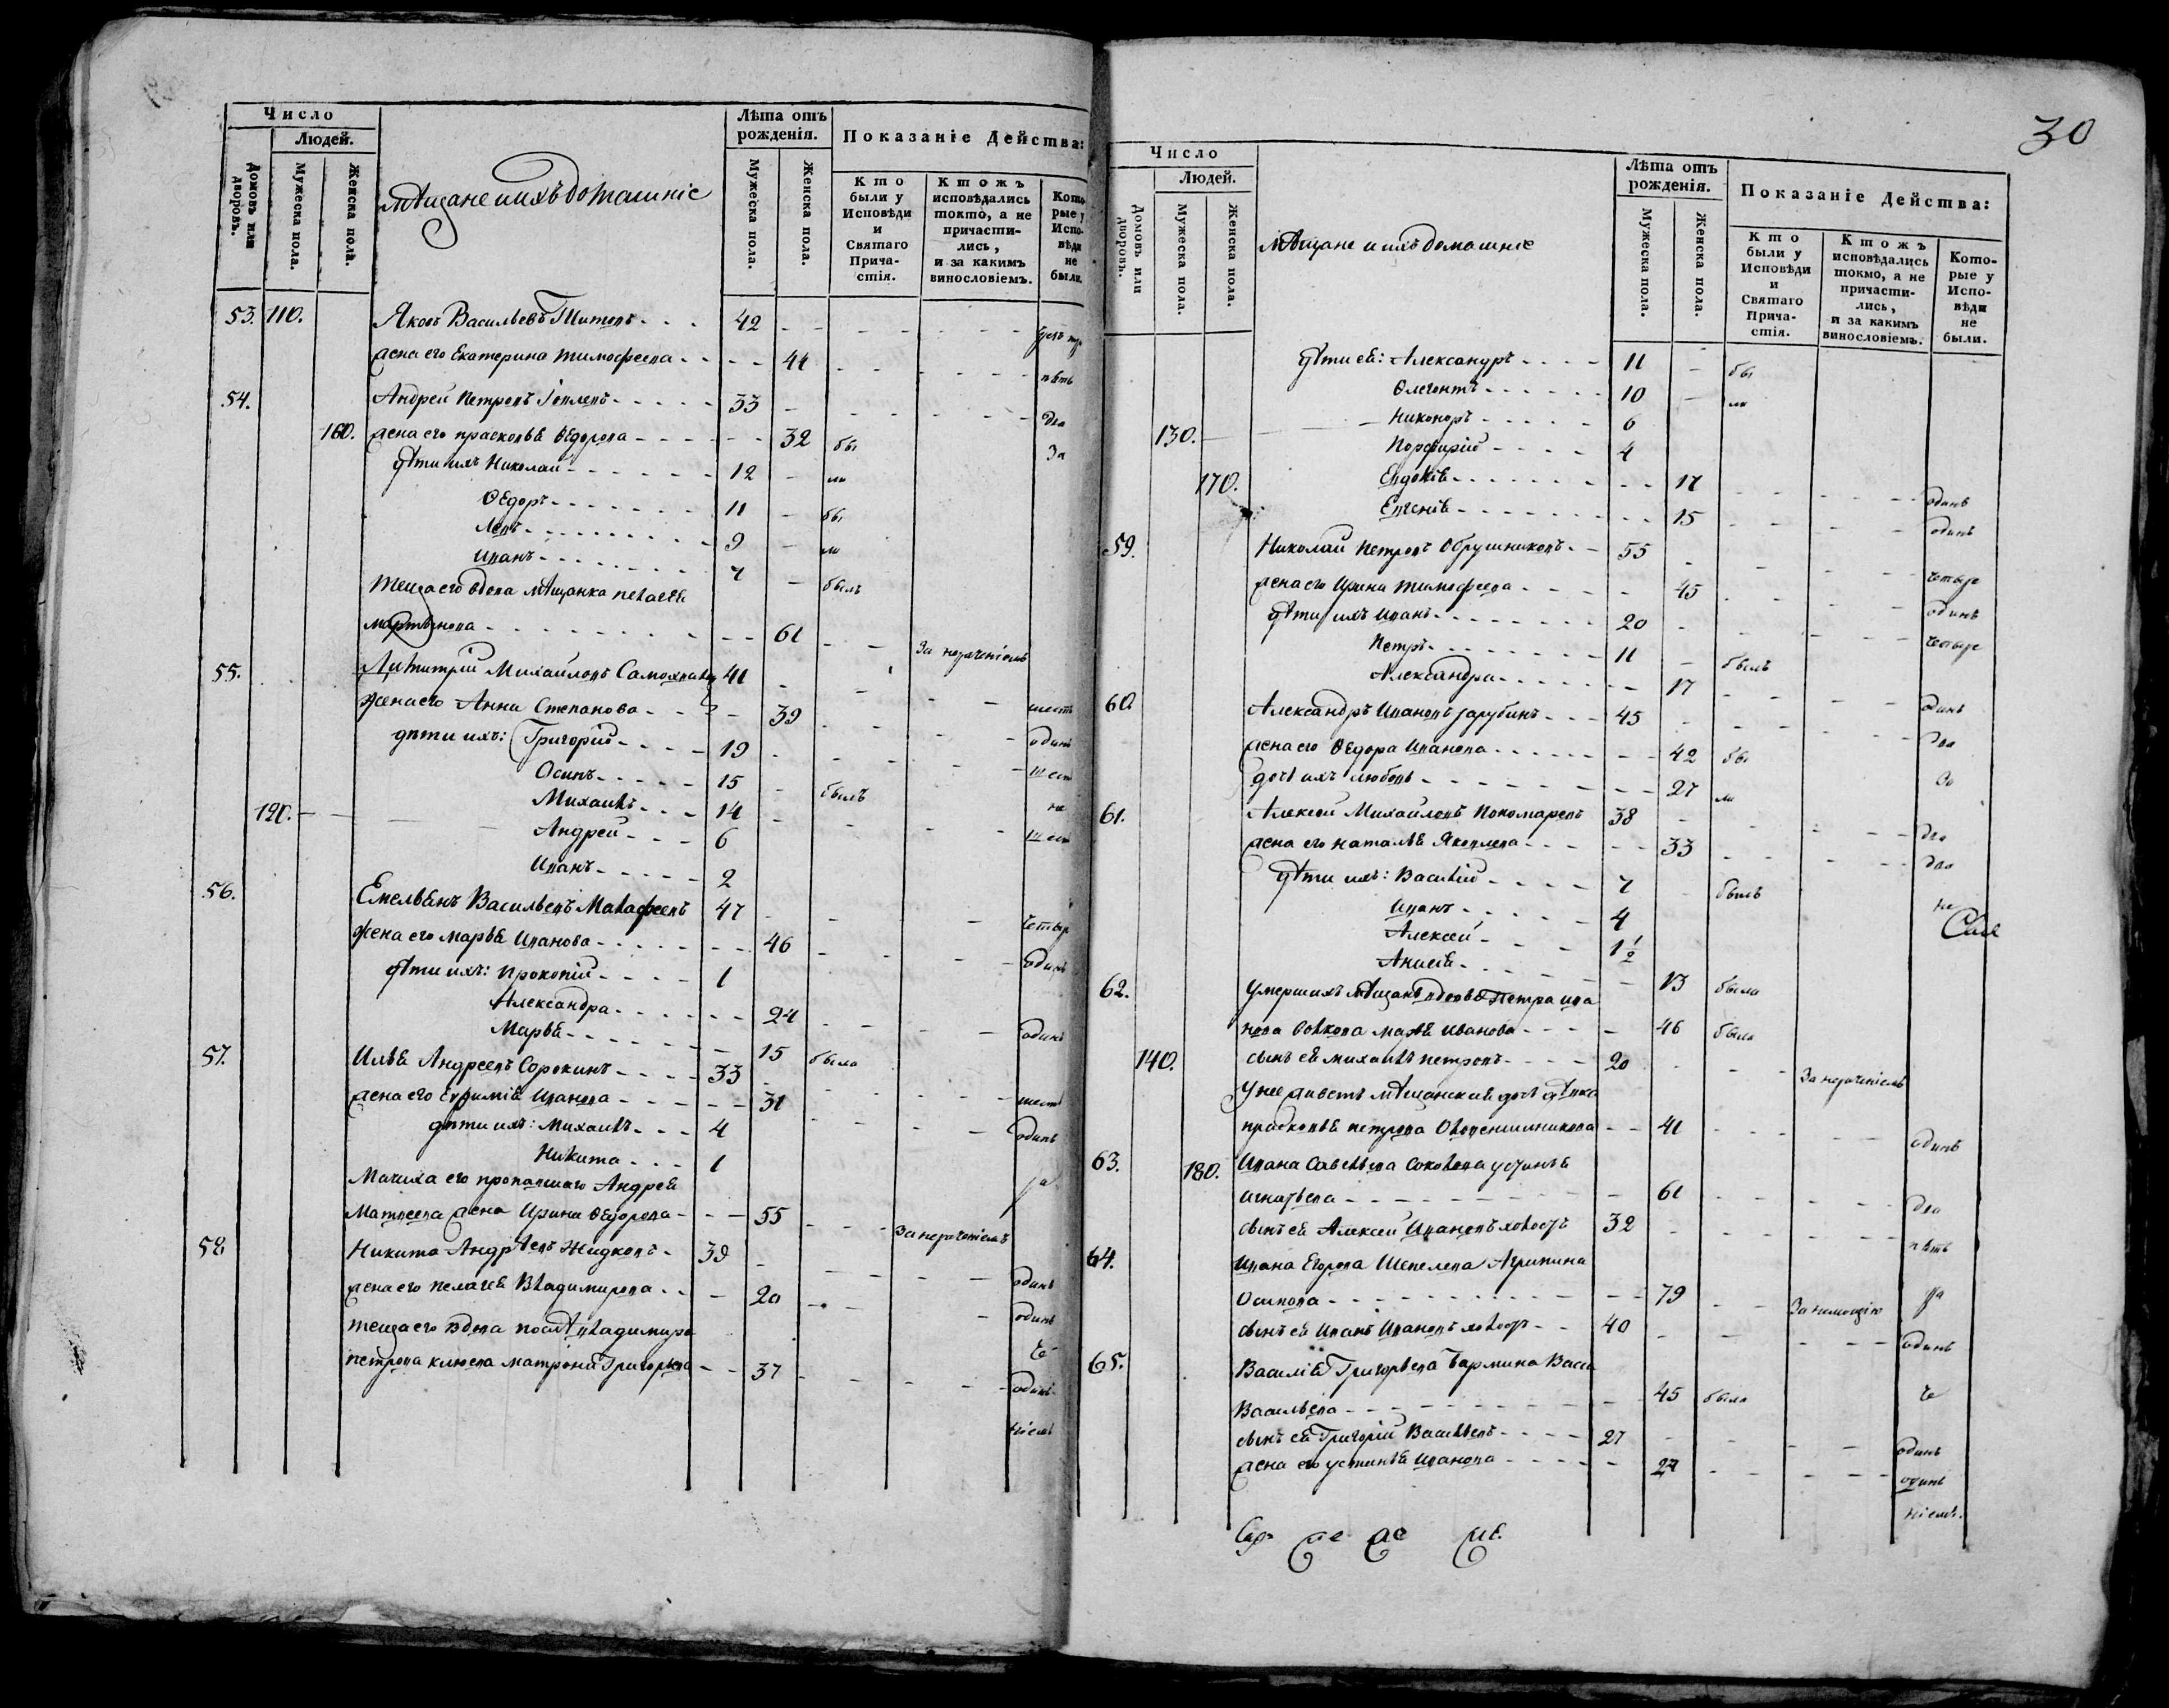 Число
Людей.
Домовъ или дворовъ.
Мужеска пола.
Женска пола.
мѣщане и ихъ домашніе
Лѣта отъ рожденія.
Мужеска пола.
Женска пола.
Показаніе Действа:
Кто были у Исповѣди и Святаго Прича-стія.
Ктожъ исповѣдались токмо, а не причасти-лись, и за какимъ винословіемъ.
Кото рые у Испо- вѣди не были.
53. 110. Яковъ Васильевъ Титовъ 42
жена его Екатерина Тимофеева 41
пять
54. Андрей Петровъ 33
два
160. жена его Прасковья Ѳедорова 32 бы
за
дѣти ихъ Николай 12 ли
Ѳедоръ 11 бы
Левъ 9 ли
Иванъ 7 былъ
Теща его вдова мѣщанка Пелагея
Мартынова 61 За нераченіемъ
55. Димитрій Михайловъ 41
шесть
жена его Анна Степанова 39
одинъ
дѣти ихъ: Григорій 19
шест
Осипъ 15 былъ
не
Михаилъ 14
шест
120. Андрей 6
Иванъ 2
56. Емельянъ Васильевъ Малафеевъ 47
четыр
жена его Марья Иванова 46
одинъ
дѣти ихъ: Прокопій 1
Александра 24
одинъ
Марья 15 была
57. Илья Андреевъ Сорокинъ 33
шест
жена его Евфимія Иванова 31
одинъ
дѣти ихъ: Михаилъ 4
Никита 1
Мачиха его пропавшаго Андрея
Матвеева жена Ирина Ѳедорова 55 За нераченіемъ
58. Никита Андреевъ Жидковъ 39
одинъ
жена его Пелагея Владимирова 20
одинъ
теща его вдова послѣ Владимира
Петрова Матрона Григорьева 37
одинъ
ніемъ
30
Число
Людей.
Домовъ или дворовъ.
Мужеска пола.
Женска пола.
мѣщане и ихъ домашніе
Лѣта отъ рожденія.
Мужеска пола.
Женска пола.
Показаніе Действа:
Кто были у Исповѣди и Святаго Прича-стія.
Ктожъ исповѣдались токмо, а не причасти-лись, и за какимъ винословіемъ.
Кото-рые у Испо-вѣди не были.
дѣти ея: Александръ 11 бы
Флегонтъ 10 ли
Никоноръ 6
130. Порфирій 4
170. Евдокія 17
одинъ
Евгенія 15
одинъ
59. Николай Петровъ Обрушниковъ 55
четыре
жена его Ирина Тимофеева 45
одинъ
дѣти ихъ Иванъ 20
четыре
Петръ 11 былъ
Александра 17
одинъ
60. Александръ Ивановъ Зарубинъ 45
два
жена его Ѳедора Иванова 42 бы
дочь ихъ Любовь 27 ли
61. Алексей Михайловъ Пономаревъ 38
два
жена его Наталья Яковлева 33
два
дѣти ихъ: Василій 7 былъ
не
Иванъ 4
Алексей 1½
Анисія 13 была
62. умершихъ мѣщанъ вдовы Петра Ива
нова Марья Иванова 46 была
140. сынъ ея Михаилъ Петровъ 20 За нераченіемъ
У нее живетъ мѣщанская дочь дѣвка
Прасковья Петрова 41
одинъ
63. 180. Ивана Савельева Соколова Устинья
Игнатьева 61
два
сынъ ея Алексей Ивановъ холостъ 32
пять
64. Ивана Егорова Шепелева Агрипина
Осипова 79 За немощію
за
сынъ ея Иванъ Ивановъ холостъ 40
одинъ
65. Василія Григорьева Бармина Васса
Васильева 45 была
сынъ ея Григорій Васильевъ 27
одинъ
жена его Устинья Иванова 27
одинъ
ніемъ.